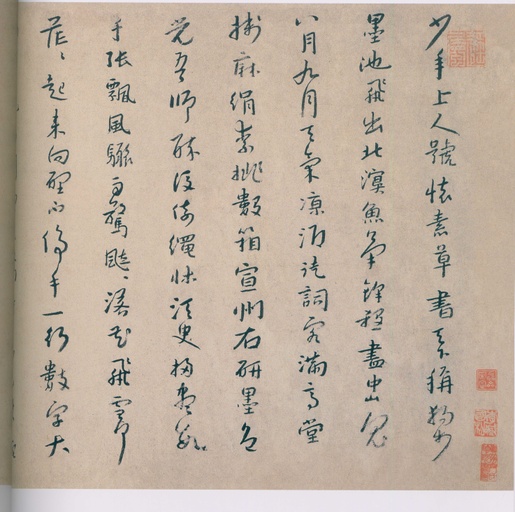 少年上人號懷素草書天下稱獨步
墨池飛出北溟魚筆鋒殺盡中山兔
八月九月天氣涼酒徒詞客滿高堂
麻絹素排數箱宣州石研墨色
光吾師醉後倚繩床須臾掃盡數
千張飄風驟雨驚颯〻落花飛雪何
茫〻起來向壁不停手一行數字大